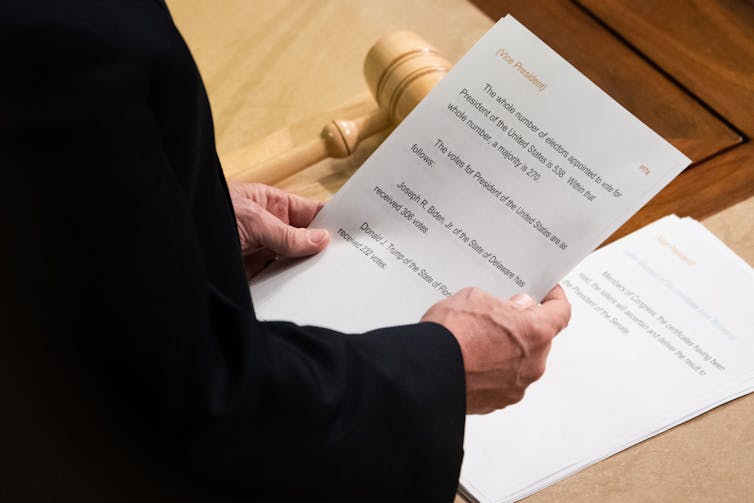 (Vice President)
The whole number of electors appointed to vote for
President of the United States is 538. Within that
whole number, a majority is 270.
The votes for President of the United States are as
follows:
Joseph R. Biden, Jr. of the State of Delaware has
received 306 votes.
Donald J. Trump of the State of
received 232 votes.
(Vice President)
Members of Congress, the certificates having been
read, the tellers will ascertain and deliver the result to
the President of the Senate.